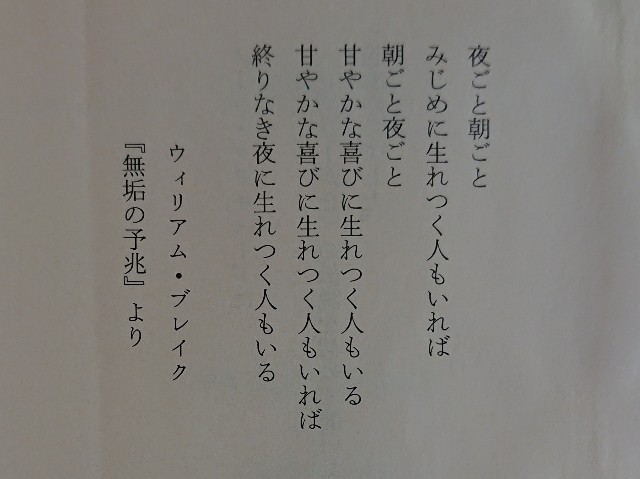 夜ごと朝ごと
みじめに生れつく人もいれば
朝ごと夜ごと
甘やかな喜びに生れつく人もいる
甘やかな喜びに生れつく人もいれば
終りなき夜に生れつく人もいる
ウィリアム・ブレイク
『無垢の予兆』より